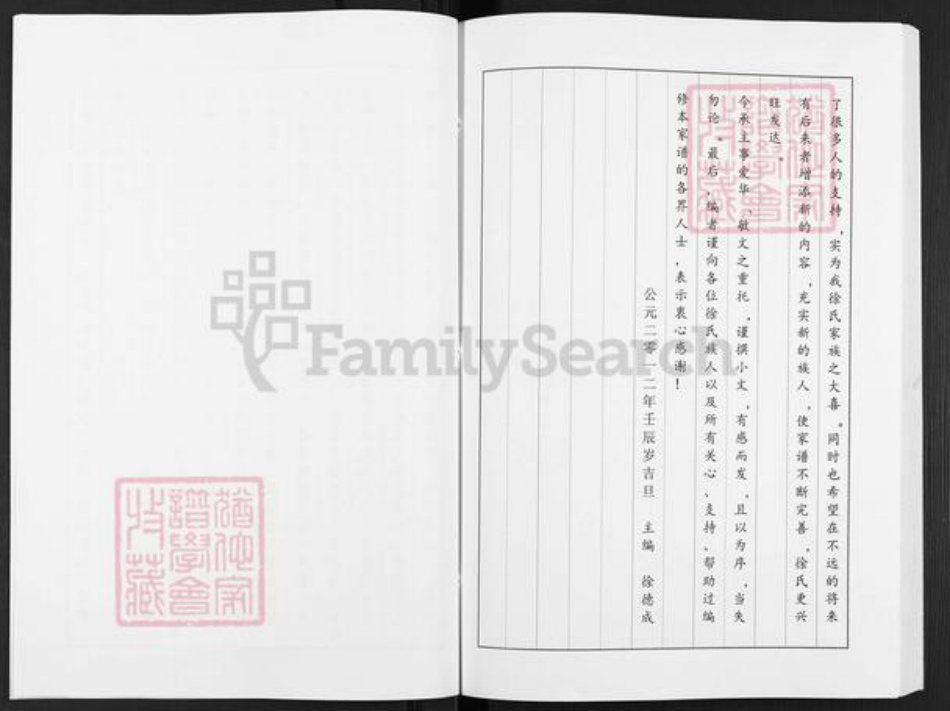 了很多人的支持，实为我徐氏家族之大喜。同时也希望在不远的将来
有后来者增添新的内容，充实新的族人，使家谱不断完善，徐氏更兴
旺发达。
今承主事爱华、敏文之重托，谨撰小文，有感而发，且以为序，当失
勿论。最后，编者谨向各位徐氏族人以及所有关心、支持、帮助过编
修本家谱的各界人士，表示衷心感谢！
公元二零一二年壬辰岁吉旦 主编 徐德成
FamilySearch
猶他家
譜學會
收藏
猶他家
譜學會
收藏